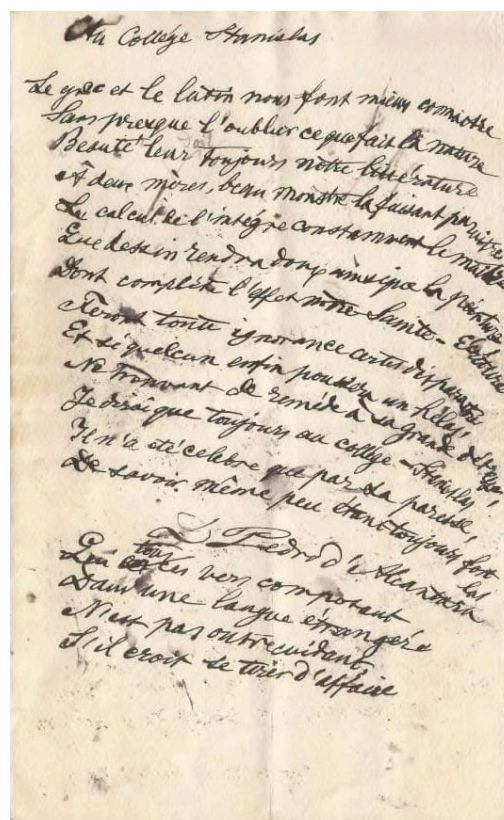 Au Collége Stanislas
Le grec et le latin nous font mieux connaître
Sans presque l'oublier ce que fait la nature
Beauté leur toujours notre littérature
À deux mères, beau monstre la faisant paraître
Le calcul de l'intégre constamment le
Que dessin rendra donc ainsi que la peinture
Dont complète l'effet notre Sainte-
Feront toute ignorance certes disparaître
Et si quelcun enfin poussera un hélas,
Ne trouvant de remède à sa grande
Je dirai que toujours au collège-Stanislas
Il n'a été célebre que par sa paresse,
De savoir même peu étant toujours fort las
D. Pedro d'Alcantara
Qui tous ces vers composant
Dans une langue étrangère
N'est pas outrecuidant
S'il croit se tirer d'affaire